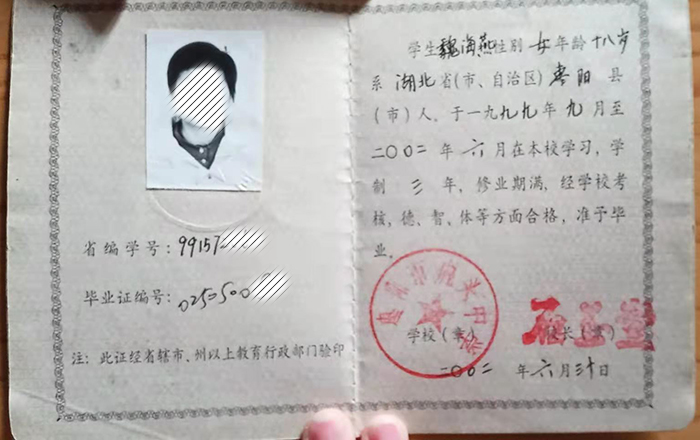 省编学号：99157
毕业证编号：0250500
注：此证经省辖市、州以上教育行政部门验印
学生魏海燕性别女年龄十八岁
系湖北省(市、自治区)枣阳县
(市)人，于一九九九年九月至
二〇〇二年六月在本校学习，学
制三年，修业期满，经学校考
核，德、智、体等方面合格，准予毕
业。
学校(章) 校长(章)
二〇〇二年六月三十日